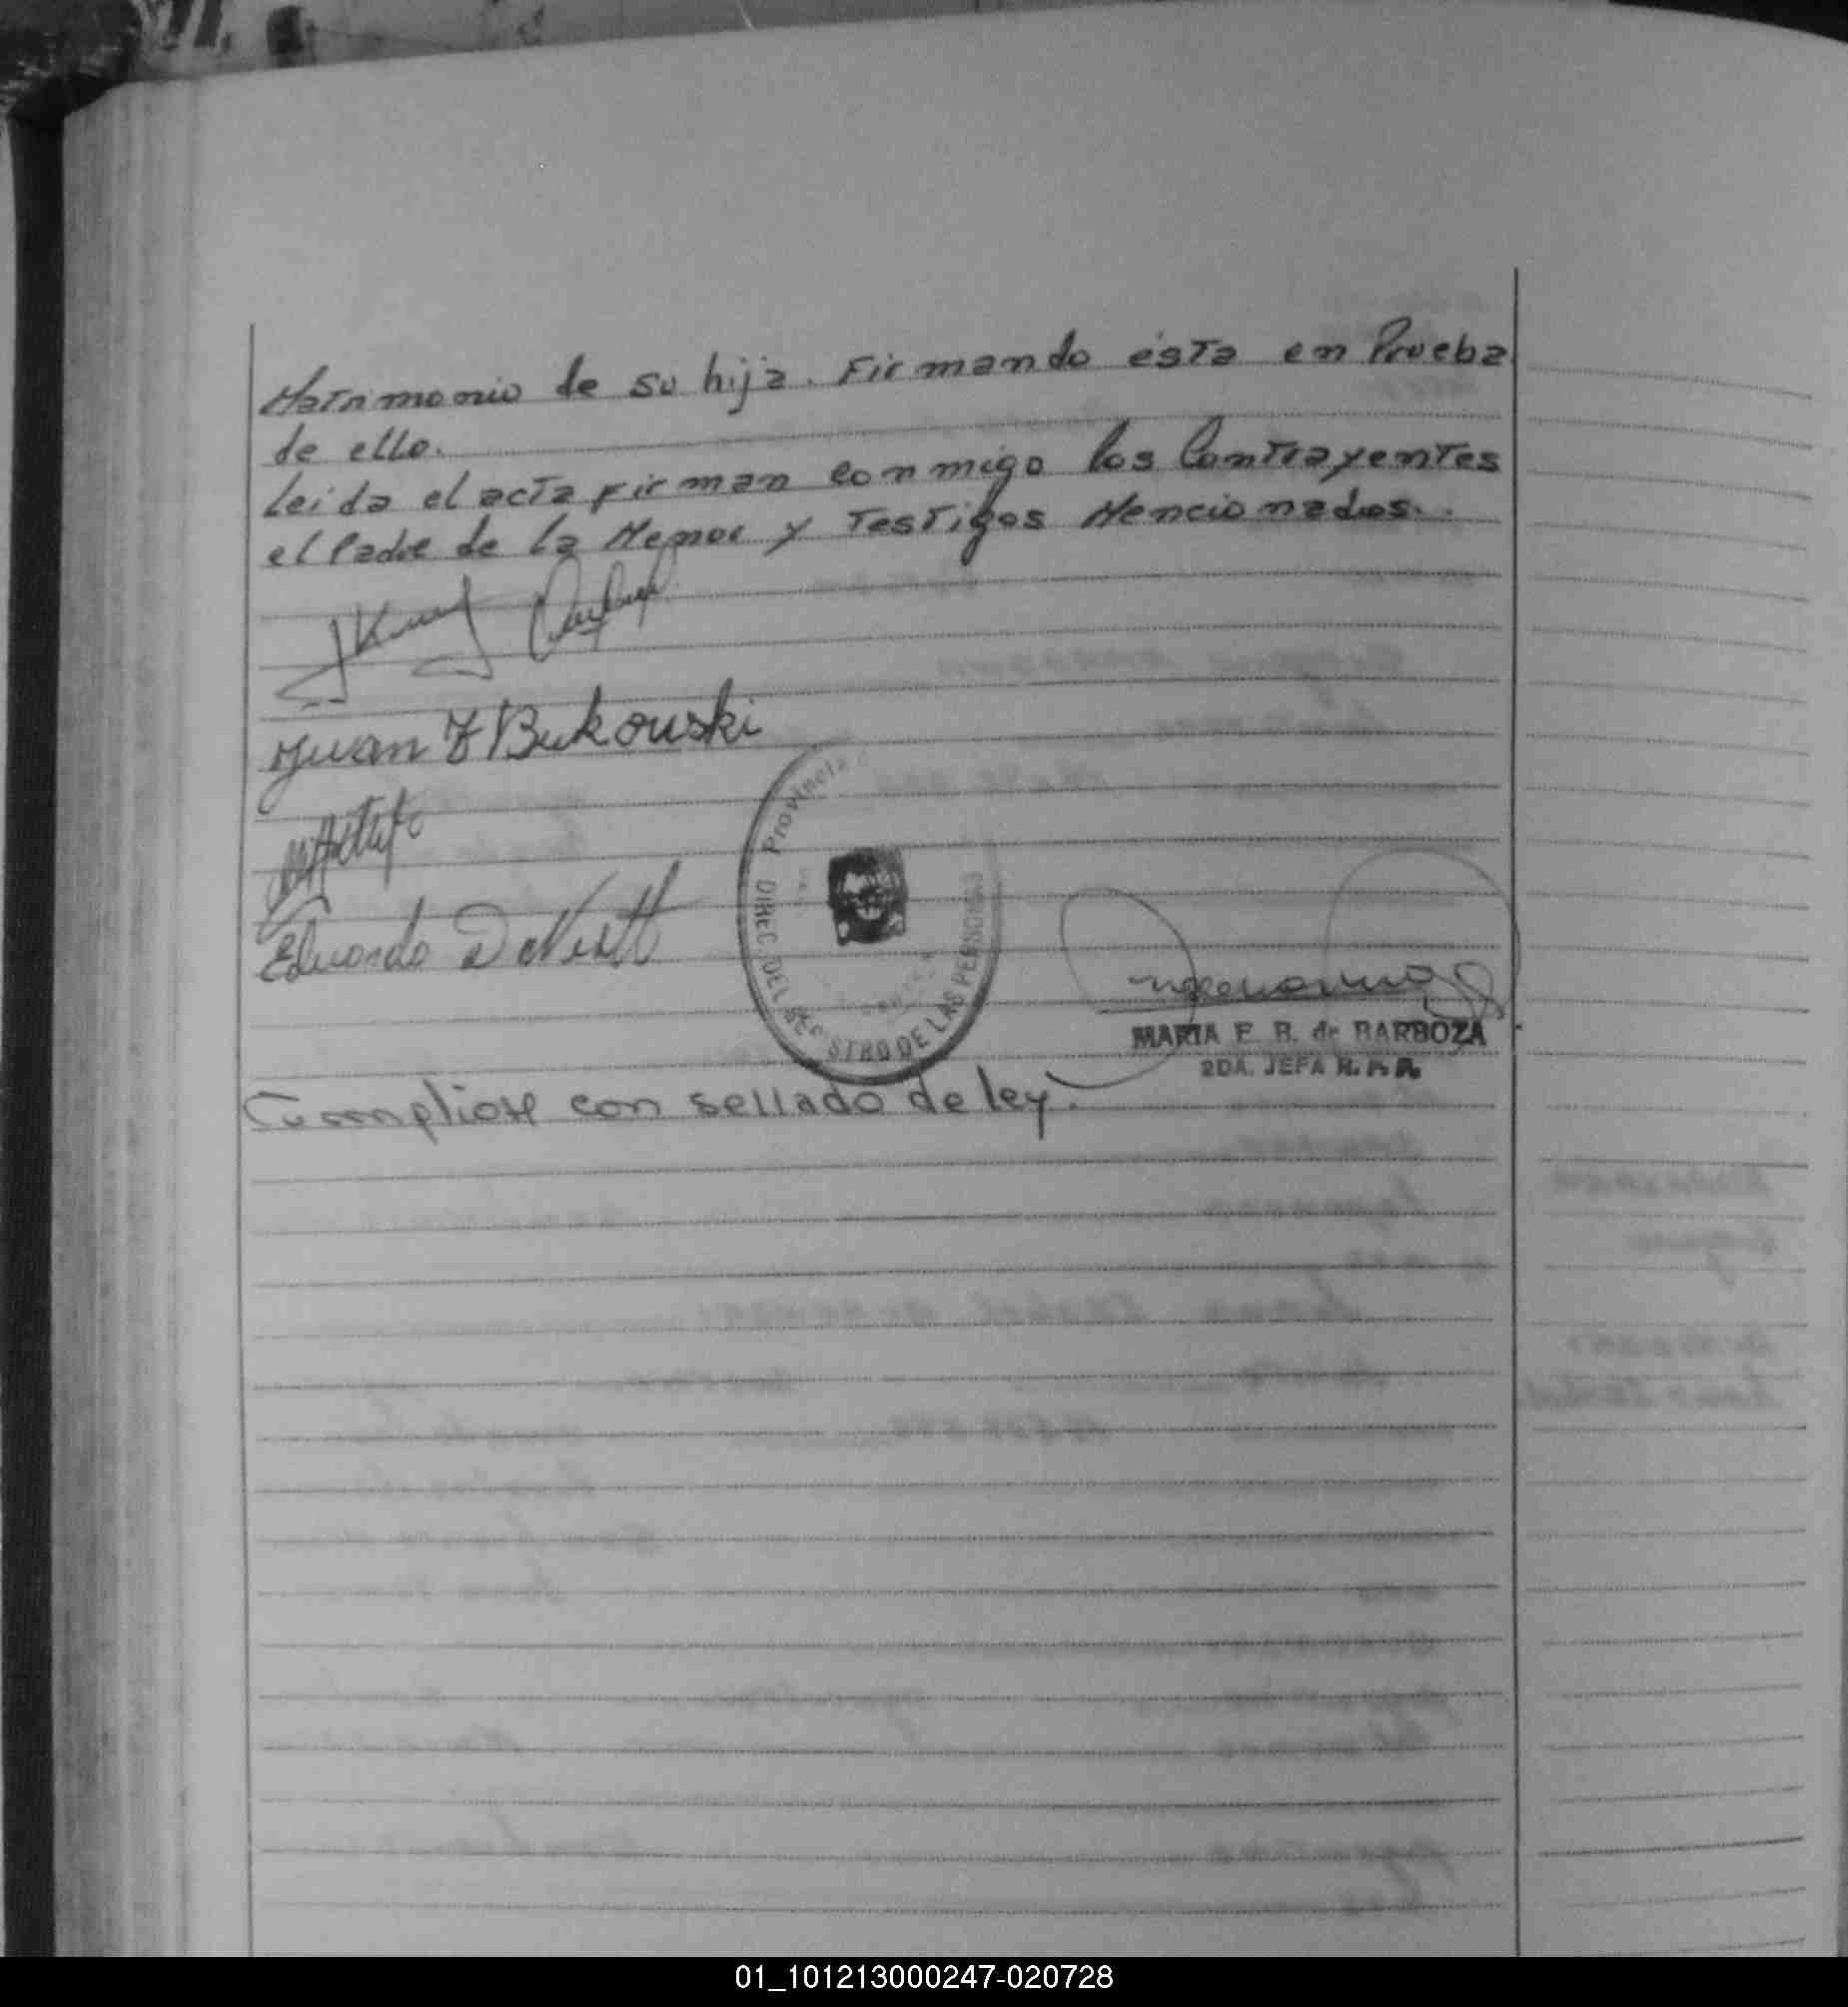 Matrimonio de su hija. Firmando ésta en Prueba
de ello.
Leida el acta firman conmigo los Contrayentes
el Padre de la Menor y Testigos Mencionados.
Juan Bukowski
Eduardo
Provincia
DIREC. DEL REGISTRO DE LAS PERSONAS
MARIA E. B. de BARBOZA
2DA. JEFA R. P.
Cumpliose con sellado de ley.
01_101213000247-020728